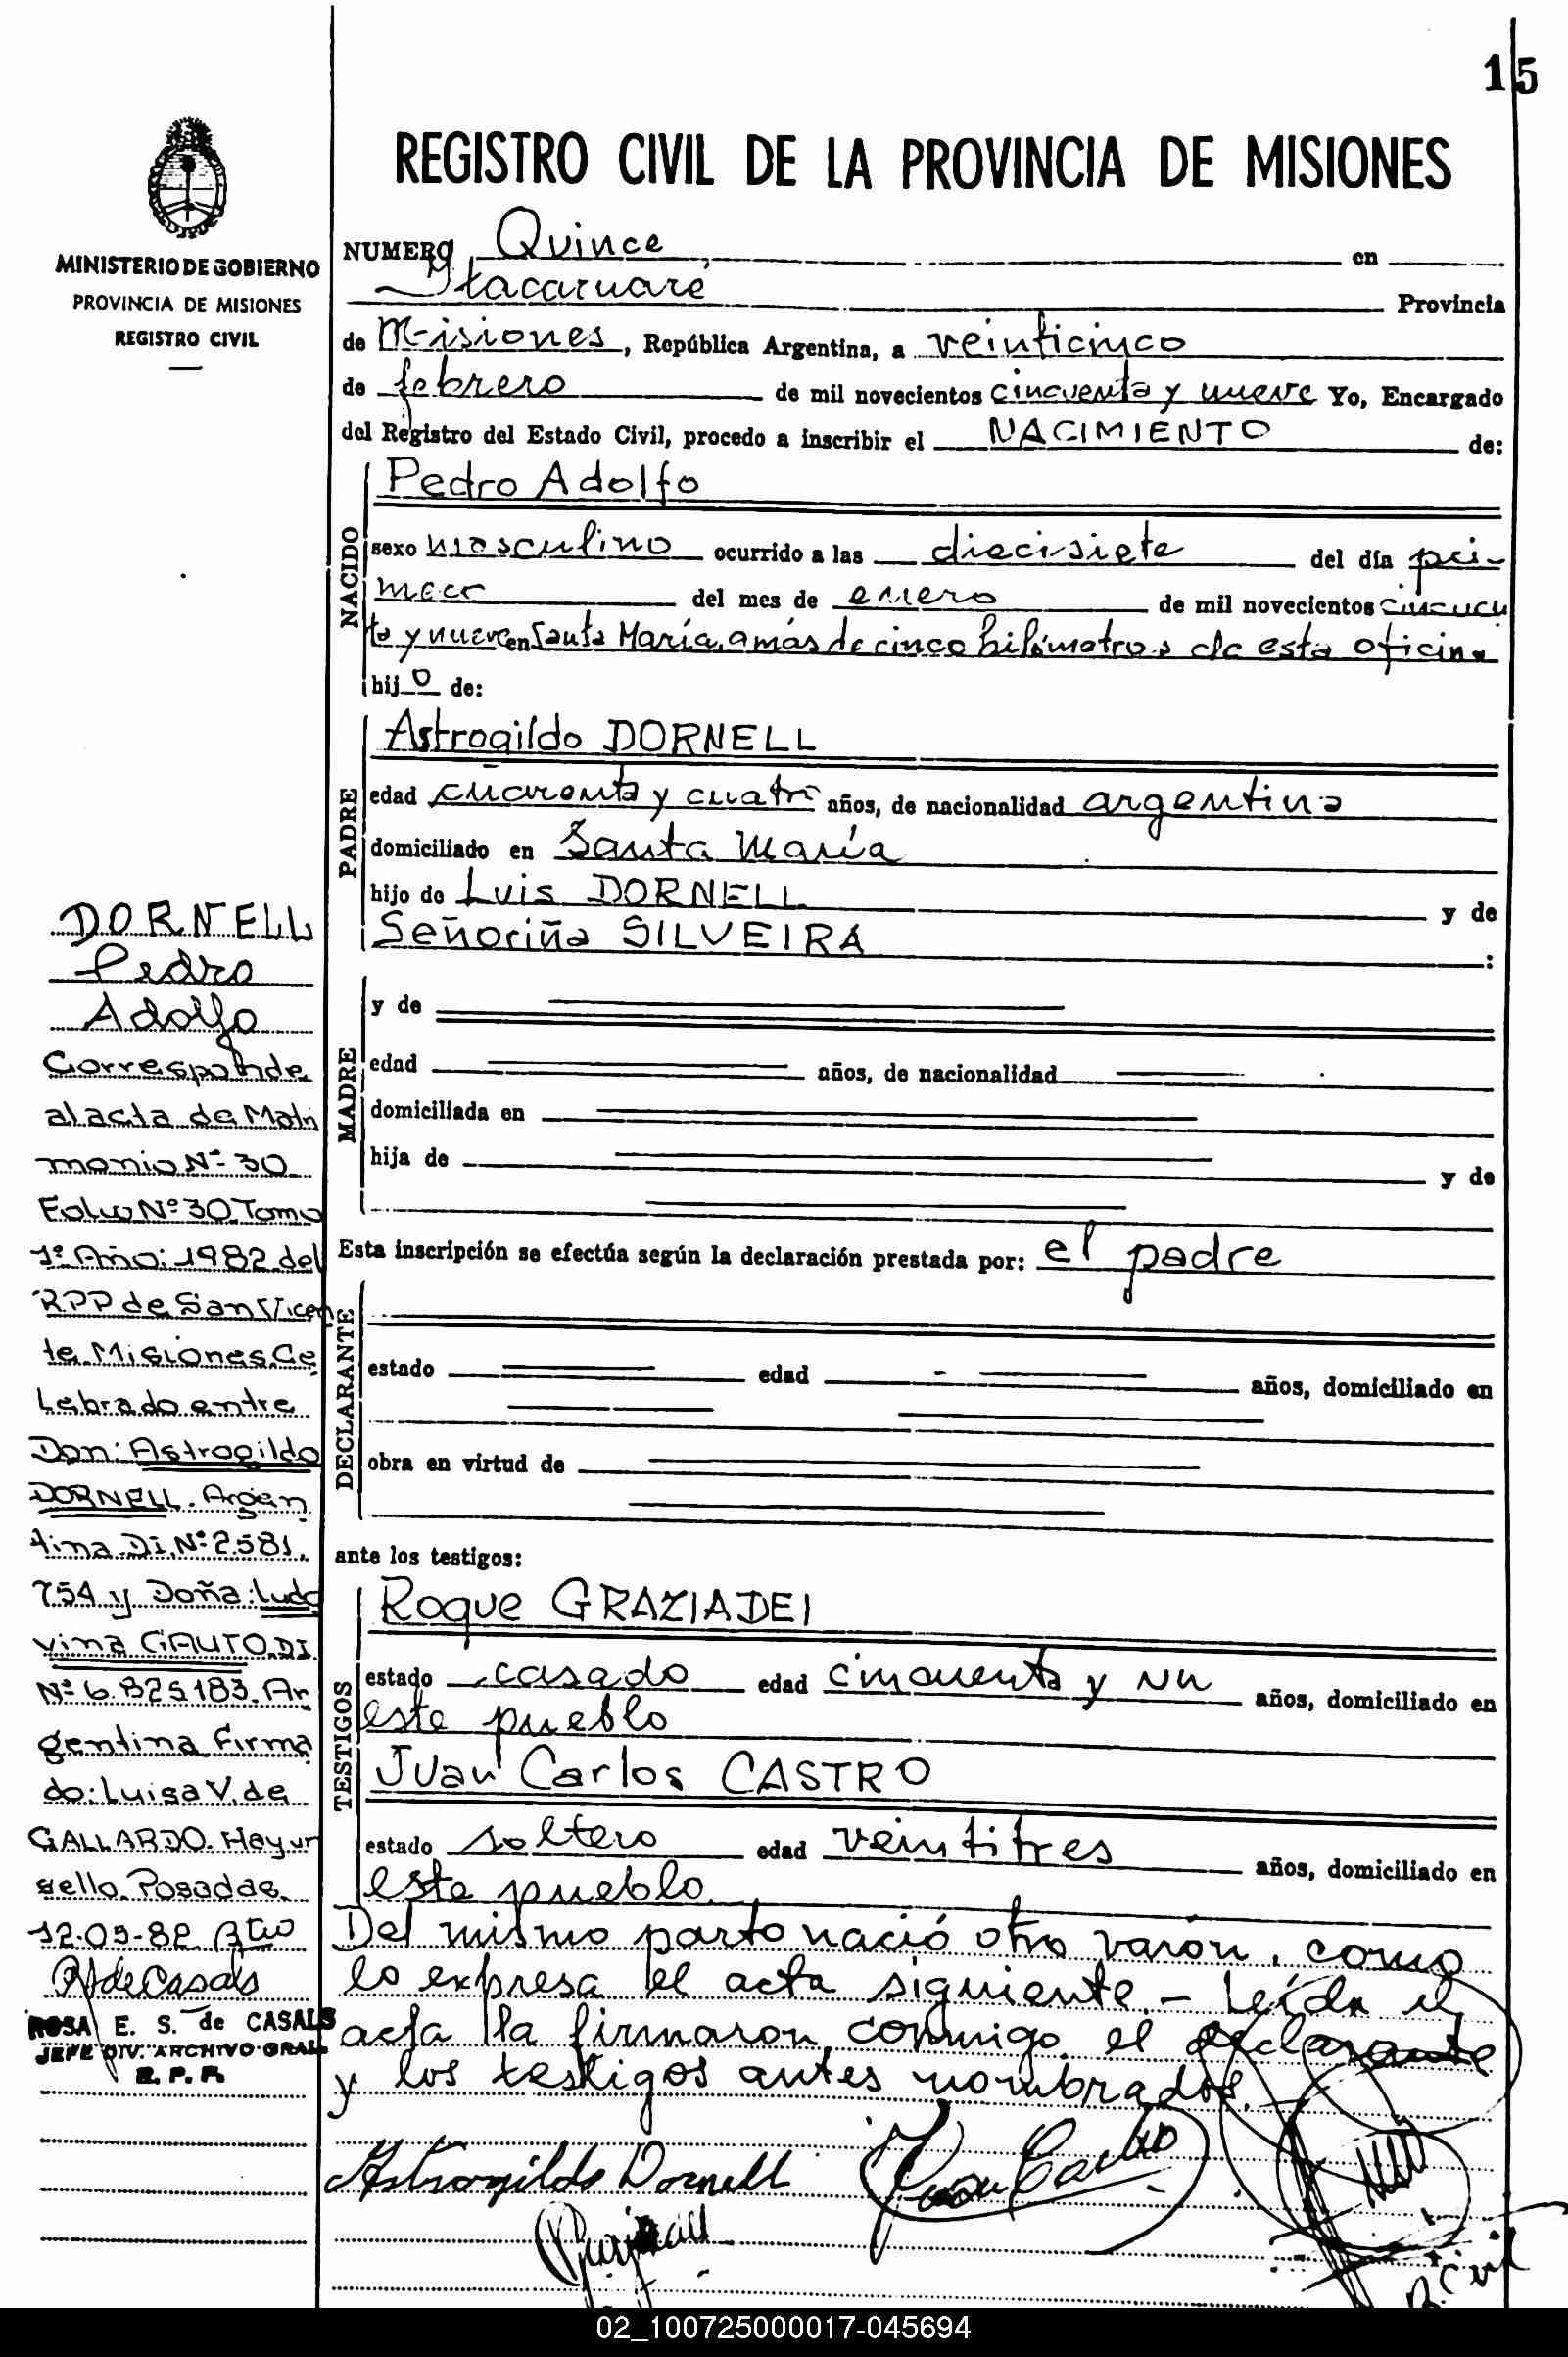 15
REGISTRO CIVIL DE LA PROVINCIA DE MISIONES
MINISTERIO DE GOBIERNO
PROVINCIA DE MISIONES
REGISTRO CIVIL
NUMERO Quince en
Itacaruaré Provincia
de Misiones, República Argentina, a veinticinco
de febrero de mil novecientos cincuenta y nueve Yo, Encargado
del Registro del Estado Civil, procedo a inscribir el NACIMIENTO de:
NACIDO
Pedro Adolfo
sexo masculino ocurrido a las diecisiete del día pri-
mero del mes de enero de mil novecientos cincuen
ta y nueve en Santa María, a más de cinco kilómetros de esta oficina
hijo de:
PADRE
Astrogildo DORNELL
edad cuarenta y cuatro años, de nacionalidad argentina
domiciliado en Santa María
hijo de Luis DORNELL y de
Señoriña SILVEIRA :
MADRE
y de
edad años, de nacionalidad
domiciliada en
hija de y de
Esta inscripción se efectúa según la declaración prestada por: el padre
DECLARANTE
estado edad años, domiciliado en
obra en virtud de
ante los testigos:
TESTIGOS
Roque GRAZIADEI
estado casado edad cincuenta y un años, domiciliado en
este pueblo
Juan Carlos CASTRO
estado soltero edad veintitres años, domiciliado en
este pueblo.
Del mismo parto nació otro varón, como
lo expresa el acta siguiente.- Leída el
acta la firmaron conmigo el declarante
y los testigos antes nombrados.
Astrogildo Dornell Juan Castro
R. Civil
DORNELL
Pedro
Adolfo
Corresponde
al acta de Matri
monio Nº 30
Folio Nº 30 Tomo
1º Año: 1982 del
RPP de San Vicen
te Misiones Ce
lebrado entre
Don: Astrogildo
DORNELL. Argen
tina DI. Nº 2.581.
754 y Doña: Ludo
vina GAUTO. DI.
Nº 6.825183. Ar
gentina Firma
do: Luisa V. de
GALLARDO. Hay un
sello. Posadas.
12-09-82
R S de Casals
ROSA E. S. de CASALS
JEFE DIV. ARCHIVO GRAL.
R. P. P.
02_100725000017-045694